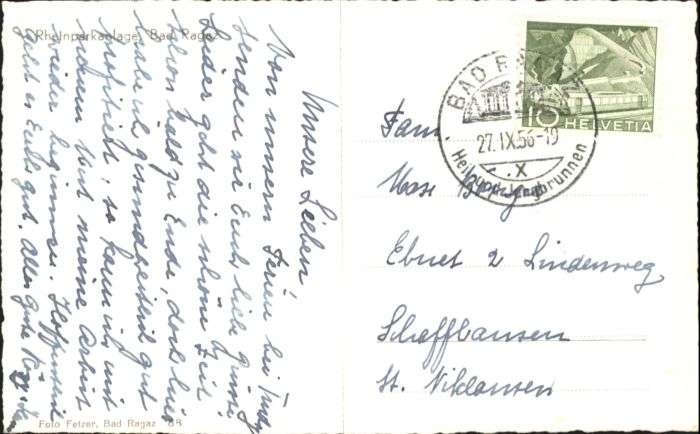 Rheinparkanlage, Bad Ragaz
Unsere Lieben!
Von unsern Ferien bei
senden wir Euch liebe Grüsse
Leider geht die schöne Zeit
schon bald zu Ende, doch hier
habe ich gesundheitlich gut
profitiert, so kann ich mit
neuem Mut meine Arbeit
wieder beginnen. Hoffentlich
geht es Euch gut. Alles gute
Foto Fetzer, Bad Ragaz 68
BAD RAGAZ
27.IX.56-19
X
10 HELVETIA
Fam.
Ebnet 2 Lindenweg
Schaffhausen
St. Niklausen